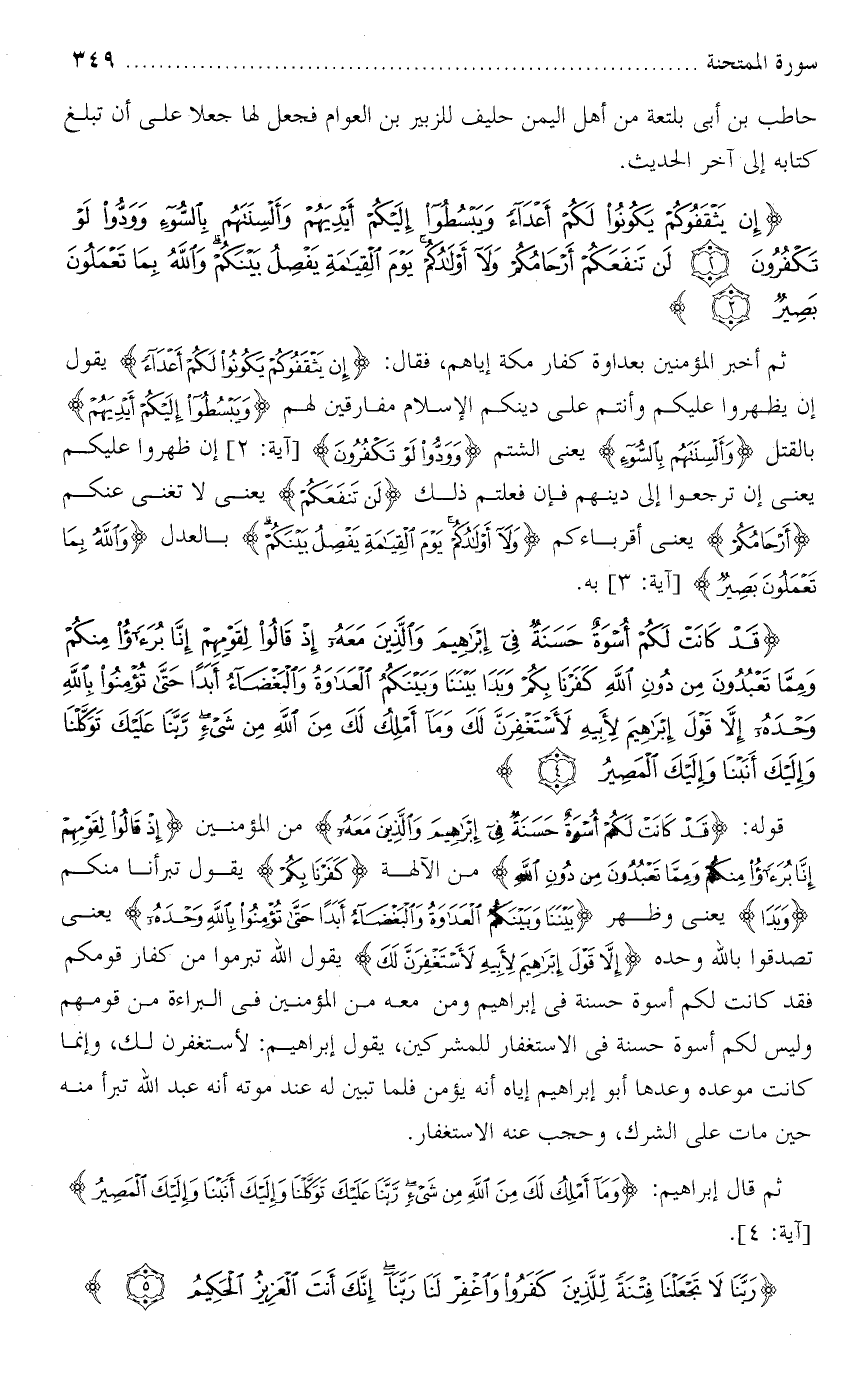 سورة الممتحنة ................................................................. ٣٤٩
حاطب بن أبى بلتعة من أهل اليمن حليف للزبير بن العوام فجعل لها جعلا على أن تبلغ
كتابه إلى آخر الحديث.
﴿إِن يَثْقَفُوكُمْ يَكُونُواْ لَكُمْ أَعْدَآءً وَيَبْسُطُوٓاْ إِلَيْكُمْ أَيْدِيَهُمْ وَأَلْسِنَتَهُم بِالسُّوٓءِ وَوَدُّواْ لَوْ
تَكْفُرُونَ ٢ لَن تَنفَعَكُمْ أَرْحَامُكُمْ وَلَآ أَوْلَٰدُكُمْۚ يَوْمَ ٱلْقِيَٰمَةِ يَفْصِلُ بَيْنَكُمْۗ وَٱللَّهُ بِمَا تَعْمَلُونَ
بَصِيرٌ ٣ ﴾
ثم أخبر المؤمنين بعداوة كفار مكة إياهم، فقال: ﴿إِن يَثْقَفُوكُمْ يَكُونُواْ لَكُمْ أَعْدَآءً﴾ يقول
إن يظهروا عليكم وأنتم على دينكم الإسلام مفارقين لهم ﴿وَيَبْسُطُوٓاْ إِلَيْكُمْ أَيْدِيَهُمْ﴾
بالقتل ﴿وَأَلْسِنَتَهُم بِالسُّوٓءِ﴾ يعنى الشتم ﴿وَوَدُّواْ لَوْ تَكْفُرُونَ﴾ [آية: ٢] إن ظهروا عليكم
يعنى إن ترجعوا إلى دينهم فإن فعلتم ذلك ﴿لَن تَنفَعَكُمْ﴾ يعنى لا تغنى عنكم
﴿أَرْحَامُكُمْ﴾ يعنى أقرباءكم ﴿وَلَآ أَوْلَٰدُكُمْۚ يَوْمَ ٱلْقِيَٰمَةِ يَفْصِلُ بَيْنَكُمْۗ﴾ بالعدل ﴿وَٱللَّهُ بِمَا
تَعْمَلُونَ بَصِيرٌ﴾ [آية: ٣] به.
﴿قَدْ كَانَتْ لَكُمْ أُسْوَةٌ حَسَنَةٌ فِىٓ إِبْرَٰهِيمَ وَٱلَّذِينَ مَعَهُۥٓ إِذْ قَالُواْ لِقَوْمِهِمْ إِنَّا بُرَءَٰٓؤُاْ مِنكُمْ
وَمِمَّا تَعْبُدُونَ مِن دُونِ ٱللَّهِ كَفَرْنَا بِكُمْ وَبَدَا بَيْنَنَا وَبَيْنَكُمُ ٱلْعَدَٰوَةُ وَٱلْبَغْضَآءُ أَبَدًا حَتَّىٰ تُؤْمِنُواْ بِٱللَّهِ
وَحْدَهُۥٓ إِلَّا قَوْلَ إِبْرَٰهِيمَ لِأَبِيهِ لَأَسْتَغْفِرَنَّ لَكَ وَمَآ أَمْلِكُ لَكَ مِنَ ٱللَّهِ مِن شَىْءٍۖ رَّبَّنَا عَلَيْكَ تَوَكَّلْنَا
وَإِلَيْكَ أَنَبْنَا وَإِلَيْكَ ٱلْمَصِيرُ ٤ ﴾
قوله: ﴿قَدْ كَانَتْ لَكُمْ أُسْوَةٌ حَسَنَةٌ فِىٓ إِبْرَٰهِيمَ وَٱلَّذِينَ مَعَهُۥٓ﴾ من المؤمنين ﴿إِذْ قَالُواْ لِقَوْمِهِمْ
إِنَّا بُرَءَٰٓؤُاْ مِنكُمْ وَمِمَّا تَعْبُدُونَ مِن دُونِ ٱللَّهِ﴾ من الآلهة ﴿كَفَرْنَا بِكُمْ﴾ يقول تبرأنا منكم
﴿وَبَدَا﴾ يعنى وظهر ﴿بَيْنَنَا وَبَيْنَكُمُ ٱلْعَدَٰوَةُ وَٱلْبَغْضَآءُ أَبَدًا حَتَّىٰ تُؤْمِنُواْ بِٱللَّهِ وَحْدَهُۥٓ﴾ يعنى
تصدقوا بالله وحده ﴿إِلَّا قَوْلَ إِبْرَٰهِيمَ لِأَبِيهِ لَأَسْتَغْفِرَنَّ لَكَ﴾ يقول الله تبرموا من كفار قومكم
فقد كانت لكم أسوة حسنة فى إبراهيم ومن معه من المؤمنين فى البراءة من قومهم
وليس لكم أسوة حسنة فى الاستغفار للمشركين، يقول إبراهيم: لأستغفرن لك، وإنما
كانت موعده وعدها أبو إبراهيم إياه أنه يؤمن فلما تبين له عند موته أنه عبد الله تبرأ منه
حين مات على الشرك، وحجب عنه الاستغفار.
ثم قال إبراهيم: ﴿وَمَآ أَمْلِكُ لَكَ مِنَ ٱللَّهِ مِن شَىْءٍۖ رَّبَّنَا عَلَيْكَ تَوَكَّلْنَا وَإِلَيْكَ أَنَبْنَا وَإِلَيْكَ ٱلْمَصِيرُ﴾
[آية: ٤].
﴿رَبَّنَا لَا تَجْعَلْنَا فِتْنَةً لِّلَّذِينَ كَفَرُواْ وَٱغْفِرْ لَنَا رَبَّنَآۖ إِنَّكَ أَنتَ ٱلْعَزِيزُ ٱلْحَكِيمُ ٥ ﴾